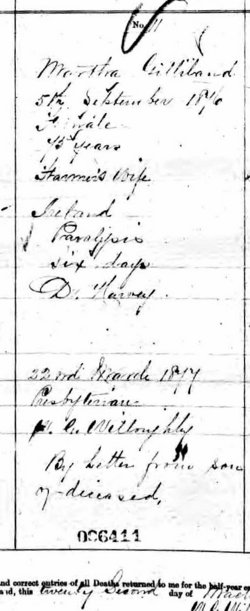 No. 11
Martha Gilliland
5th September 1876
Female
75 years
Farmer's Wife
Ireland
Paralysis
six days
Dr. Harvey
22nd March 1877
Presbyterian
C. Willoughby
By letter from son
of diceased,
006411
and correct entries of all Deaths returned to me for the half-year
aid, this twenty Second day of